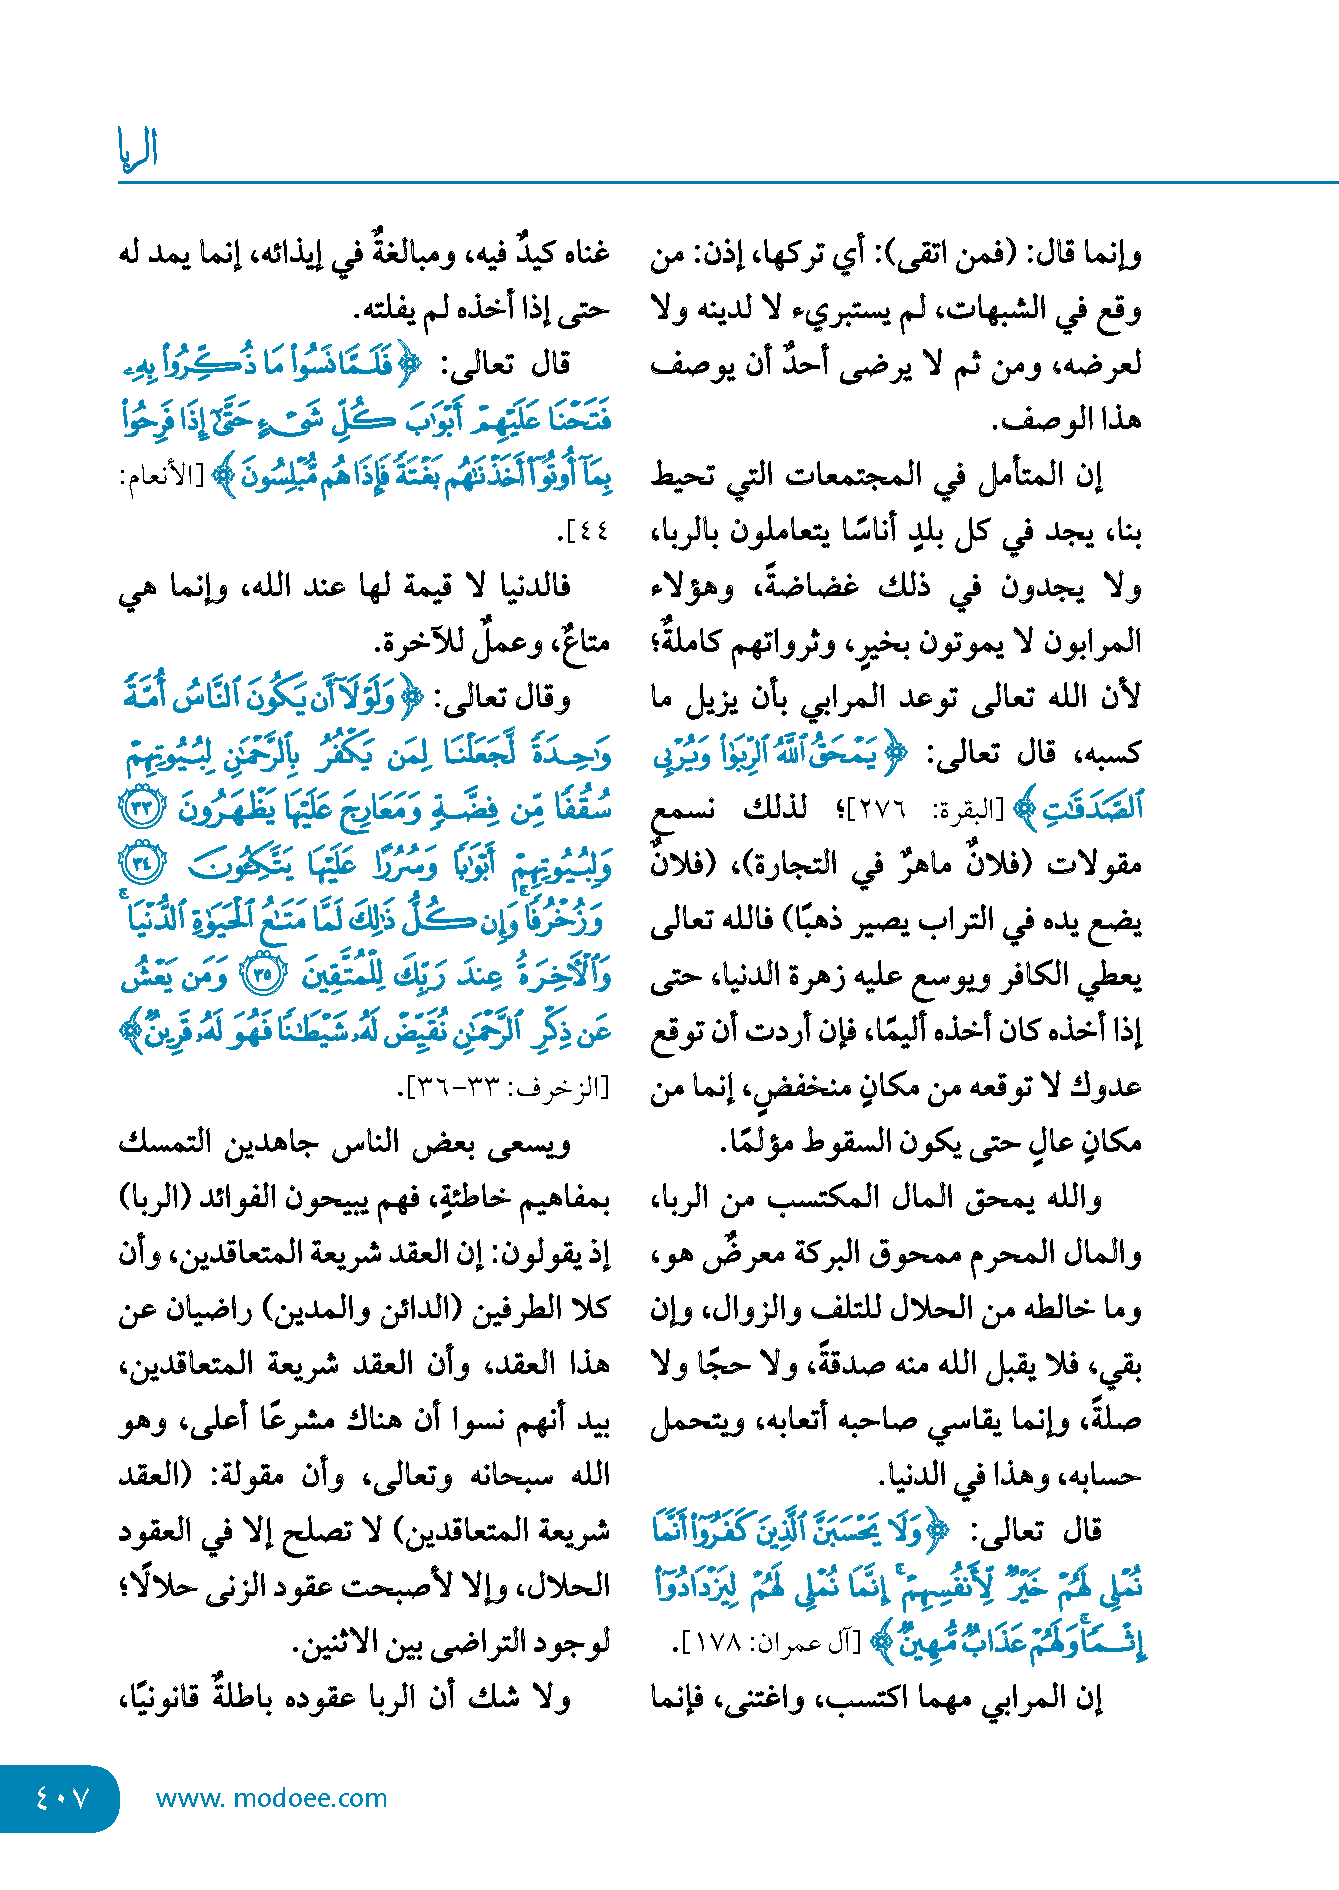 الربا
وإنما قال: (فمن اتقى): أي تركها، إذن: من
وقع في الشبهات، لم يستبريء لا لدينه ولا
لعرضه، ومن ثم لا يرضى أحدٌ أن يوصف
هذا الوصف.
إن المتأمل في المجتمعات التي تحيط
بنا، يجد في كل بلدٍ أناسًا يتعاملون بالربا،
ولا يجدون في ذلك غضاضةً، وهؤلاء
المرابون لا يموتون بخيرٍ، وثرواتهم كاملةٌ؛
لأن الله تعالى توعد المرابي بأن يزيل ما
كسبه، قال تعالى: ﴿يَمْحَقُ ٱللَّهُ ٱلرِّبَوٰا۟ وَيُرْبِى
ٱلصَّدَقَٰتِ﴾ [البقرة: ٢٧٦]؛ لذلك نسمع
مقولات (فلانٌ ماهرٌ في التجارة)، (فلانٌ
يضع يده في التراب يصير ذهبًا) فالله تعالى
يعطي الكافر ويوسع عليه زهرة الدنيا، حتى
إذا أخذه كان أخذه أليمًا، فإن أردت أن توقع
عدوك لا توقعه من مكانٍ منخفضٍ، إنما من
مكانٍ عالٍ حتى يكون السقوط مؤلمًا.
والله يمحق المال المكتسب من الربا،
والمال المحرم ممحوق البركة معرضٌ هو،
وما خالطه من الحلال للتلف والزوال، وإن
بقي، فلا يقبل الله منه صدقةً، ولا حجًا ولا
صلةً، وإنما يقاسي صاحبه أتعابه، ويتحمل
حسابه، وهذا في الدنيا.
قال تعالى: ﴿وَلَا يَحْسَبَنَّ ٱلَّذِينَ كَفَرُوٓا۟ أَنَّمَا
نُمْلِى لَهُمْ خَيْرٌ لِّأَنفُسِهِمْ ۚ إِنَّمَا نُمْلِى لَهُمْ لِيَزْدَادُوٓا۟
إِثْمًا ۚ وَلَهُمْ عَذَابٌ مُّهِينٌ﴾ [آل عمران: ١٧٨].
إن المرابي مهما اكتسب، واغتنى، فإنما
غناه كيدٌ فيه، ومبالغةٌ في إيذائه، إنما يمد له
حتى إذا أخذه لم يفلته.
قال تعالى: ﴿فَلَمَّا نَسُوا۟ مَا ذُكِّرُوا۟ بِهِۦ
فَتَحْنَا عَلَيْهِمْ أَبْوَٰبَ كُلِّ شَىْءٍ حَتَّىٰٓ إِذَا فَرِحُوا۟
بِمَآ أُوتُوٓا۟ أَخَذْنَٰهُم بَغْتَةً فَإِذَا هُم مُّبْلِسُونَ﴾ [الأنعام:
٤٤].
فالدنيا لا قيمة لها عند الله، وإنما هي
متاعٌ، وعملٌ للآخرة.
وقال تعالى: ﴿وَلَوْلَآ أَن يَكُونَ ٱلنَّاسُ أُمَّةً
وَٰحِدَةً لَّجَعَلْنَا لِمَن يَكْفُرُ بِٱلرَّحْمَٰنِ لِبُيُوتِهِمْ
سُقُفًا مِّن فِضَّةٍ وَمَعَارِجَ عَلَيْهَا يَظْهَرُونَ ٣٣
وَلِبُيُوتِهِمْ أَبْوَٰبًا وَسُرُرًا عَلَيْهَا يَتَّكِـُٔونَ ٣٤
وَزُخْرُفًا ۚ وَإِن كُلُّ ذَٰلِكَ لَمَّا مَتَٰعُ ٱلْحَيَوٰةِ ٱلدُّنْيَا ۚ
وَٱلْـَٔاخِرَةُ عِندَ رَبِّكَ لِلْمُتَّقِينَ ٣٥ وَمَن يَعْشُ
عَن ذِكْرِ ٱلرَّحْمَٰنِ نُقَيِّضْ لَهُۥ شَيْطَٰنًا فَهُوَ لَهُۥ قَرِينٌ﴾
[الزخرف: ٣٣-٣٦].
ويسعى بعض الناس جاهدين التمسك
بمفاهيم خاطئةٍ، فهم يبيحون الفوائد (الربا)
إذ يقولون: إن العقد شريعة المتعاقدين، وأن
كلا الطرفين (الدائن والمدين) راضيان عن
هذا العقد، وأن العقد شريعة المتعاقدين،
بيد أنهم نسوا أن هناك مشرعًا أعلى، وهو
الله سبحانه وتعالى، وأن مقولة: (العقد
شريعة المتعاقدين) لا تصلح إلا في العقود
الحلال، وإلا لأصبحت عقود الزنى حلالًا؛
لوجود التراضى بين الاثنين.
ولا شك أن الربا عقوده باطلةٌ قانونيًا،
www. modoee.com
٤٠٧